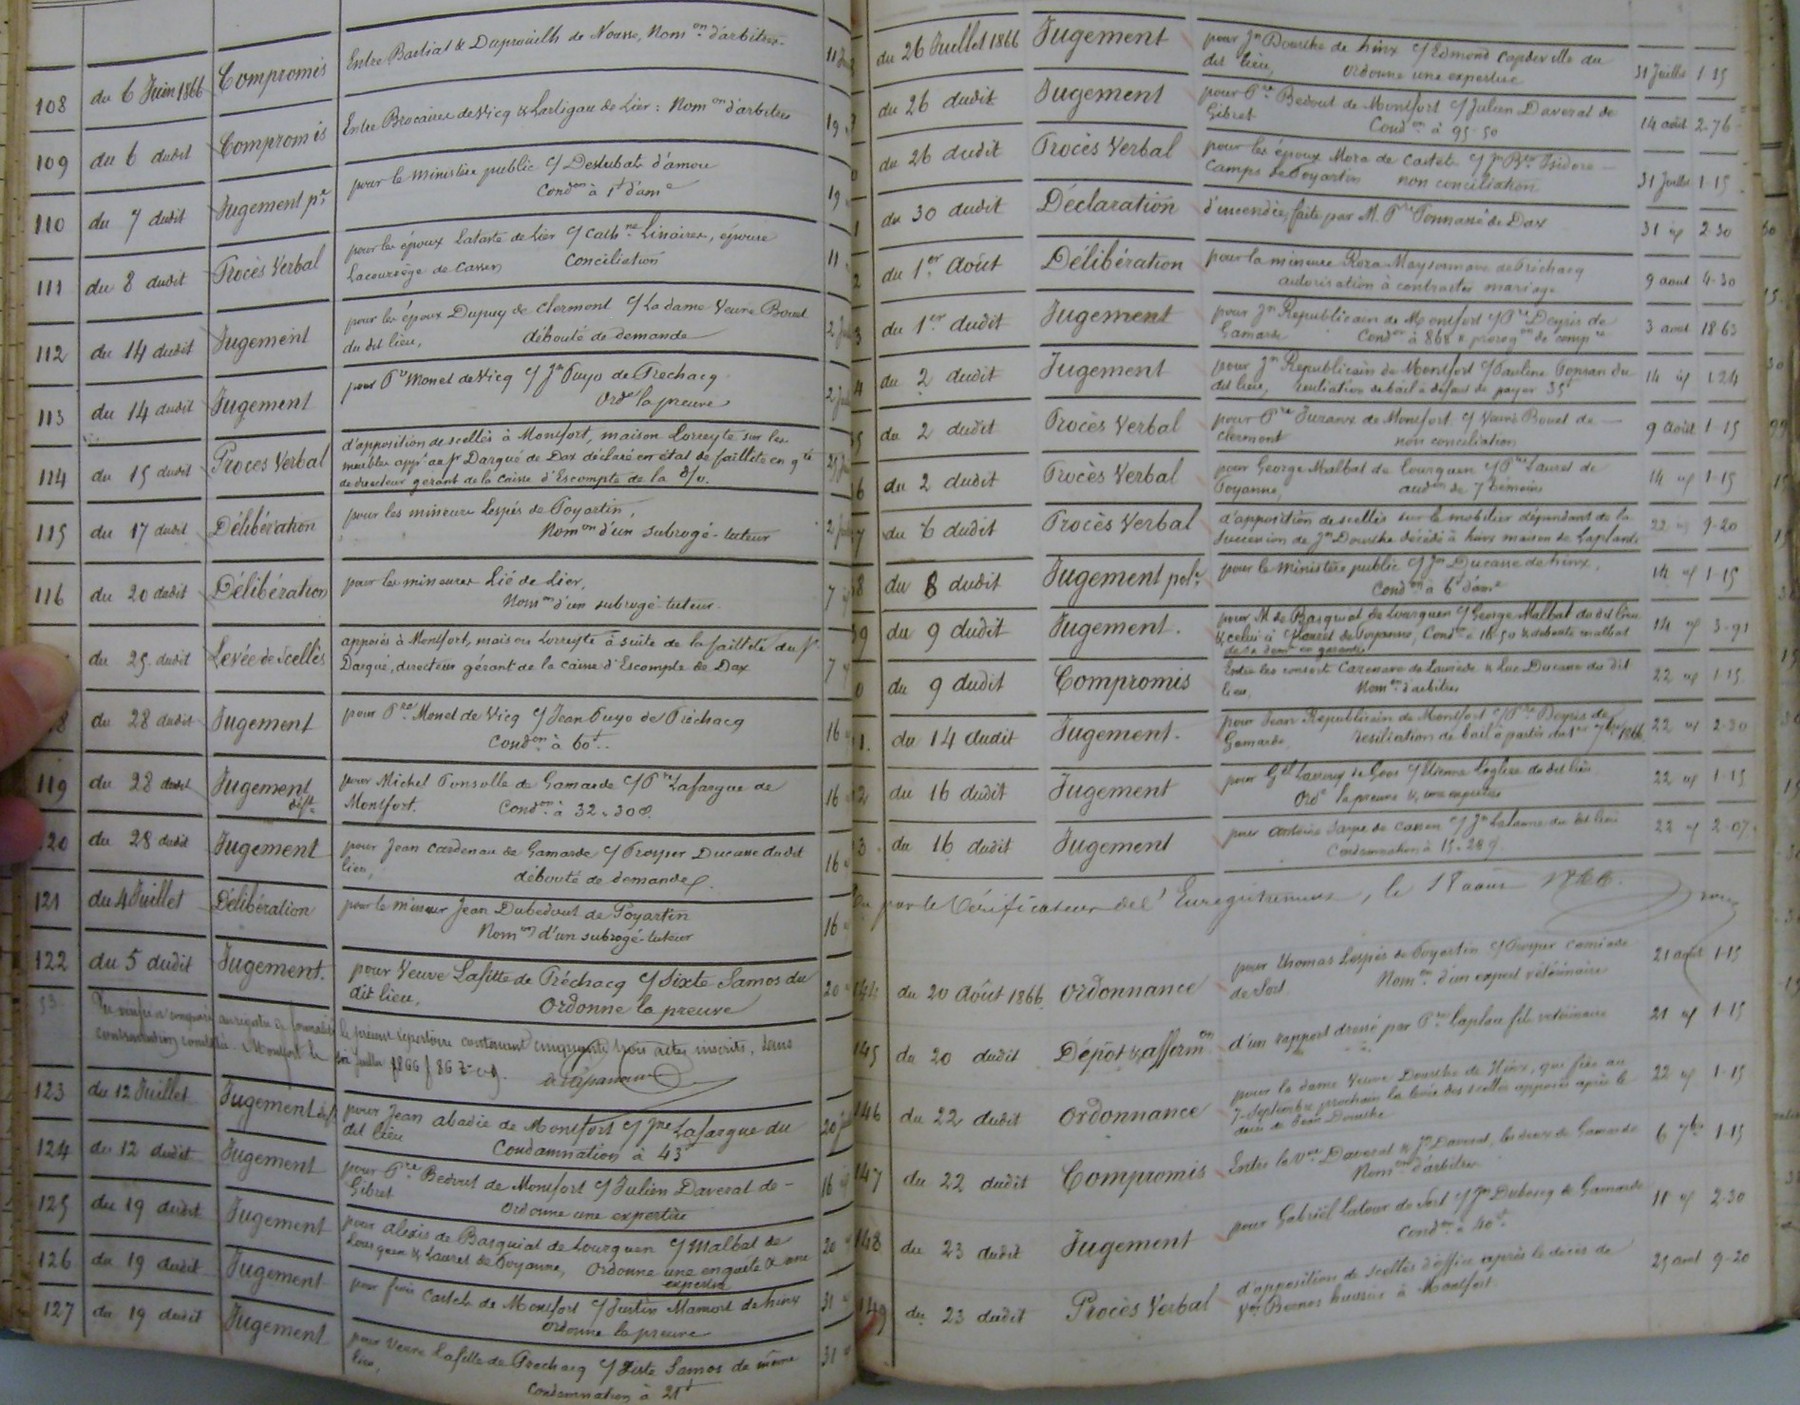 108 du 6 Juin 1866 Compromis Entre Bartiat & Duprouilh de Nousse, Nom.on d'arbitres 11
109 du 6 dudit Compromis Entre Brocaire de Vicq & Lartigau de Lier : Nom.on d'arbitres 19
110 du 7 dudit Jugement p.r pour le ministère public c/ Destubat d'amou 19
Cond.on à 1f d'am.e
111 du 8 dudit Procès Verbal pour les époux Lataste de Lier c/ Cath.ne Linaires, épouse 11
Lacouriège de Cassen Conciliation
112 du 14 dudit Jugement pour les époux Dupuy de Clermont c/ La dame Veuve Bouet 2
du dit lieu, débouté de demande
113 du 14 dudit Jugement pour P.re Monet de Vicq c/ J.n Puyo de Prechacq 2
Ord.e la preuve
114 du 15 dudit Procès Verbal d'apposition de scellés à Montfort, maison Lorreyte sur les 25
meubles app.t au Sr Darqué de Dax déclaré en état de faillite en q.té
de directeur gérant de la Caisse d'Escompte de la d/v.
115 du 17 dudit Délibération pour les mineurs Lespès de Poyartin, 2
Nom.on d'un subrogé-tuteur
116 du 20 dudit Délibération pour les mineures Lié de Lier, 7
Nom.on d'un subrogé-tuteur
du 25 dudit Levée de Scellés apposés à Montfort, maison Lorreyte à suite de la faillite du Sr 7
Darqué, directeur gérant de la Caisse d'Escompte de Dax
8 du 28 dudit Jugement pour P.re Monet de Vicq c/ Jean Puyo de Préchacq 16
Cond.on à 60f..
119 du 28 dudit Jugement déft pour Michel Ponsolle de Gamarde c/ P.re Lafargue de 16
Montfort. Cond.on à 32.30c
20 du 28 dudit Jugement pour Jean Cardenau de Gamarde c/ Prosper Ducasse dudit 16
lieu, débouté de demande
121 du 4 Juillet Délibération pour le mineur Jean Dubedout de Poyartin 16
Nom.on d'un subrogé-tuteur
122 du 5 dudit Jugement. pour Veuve Lafitte de Préchacq c/ Sixte Samos du 20
dit lieu, Ordonne la preuve
53 le présent repertoire contenant cinquante trois actes inscrits, sans
contravention Montfort le six Juillet 1866
123 du 12 Juillet Jugement déf. pour Jean abadie de Montfort c/ P.re Lafargue du 20
dit lieu Condamnation à 43f
124 du 12 dudit Jugement pour P.re Bedout de Montfort c/ Julien Daverat de - 16
Gibret Ordonne une expertise
125 du 19 dudit Jugement pour alexis de Basquiat de Lourquen c/ Malbat de 20
Lourquen & Lauret de Poyanne, Ordonne une enquête & une
expertise
126 du 19 dudit Jugement pour Castets de Montfort c/ Justin Mamort de hinx 31
Ordonne la preuve
127 du 19 dudit Jugement pour Veuve Lafitte de Prechacq c/ Sixte Samos de même 31
lieu, Condamnation à 21f
du 26 Juillet 1866 Jugement pour J.n Dourthe de hinx c/ Edmond Capdeville du 31 Juillet 1-15
dit lieu, Ordonne une expertise
du 26 dudit Jugement pour P.re Bedout de Montfort c/ Julien Daverat de 14 août 2-76
Gibret Cond.on à 95-50
du 26 dudit Procès Verbal pour les époux Mora de Castets c/ J.n B.te Isidore -
Camps de Poyartin non conciliation 31 Juillet 1-15
1 du 30 dudit Déclaration d'incendie, faite par M. P.re Tonnassé de Dax 31 id 2-30
2 du 1er Août Délibération pour la mineure Rora Maysonnave de Préchacq 9 aout 4-30
autorisation à contracter mariage
3 du 1er dudit Jugement pour J.n Republicain de Montfort c/ P.re Deyris de 3 aout 18-63
Gamarde Cond.on à 868 & prorog.on de comp.ce
4 du 2 dudit Jugement pour J.n Republicain de Montfort c/ Pauline Ponsan du 14 id 1-24
dit lieu, resiliation de bail à defaut de payer 35f
5 du 2 dudit Procès Verbal pour P.re Juranx de Montfort c/ Veuve Bouet de - 9 août 1-15
Clermont non conciliation
6 du 2 dudit Procès Verbal pour George Malbat de Lourquen c/ P.re Lauret de 14 id 1-15
Poyanne, aud.on de 7 témoins
7 du 6 dudit Procès Verbal d'apposition de scellés sur le mobilier dépendant de la 22 id 9-20
succession de J.n Dourthe décédé à hinx maison de Laplante
8 du 8 dudit Jugement pol.e pour le Ministère public c/ J.n Ducasse de hinx, 14 id 1-15
Cond.on à 6f d'am.e
39 du 9 dudit Jugement. pour M. de Basquiat de Lourquen c/ George Malbat du dit lieu 14 id 3-91
& celui-ci c/ Lauret de Poyanne, Cond.on à 18-50 & deboute malbat
de sa dem.e en garantie
0 du 9 dudit Compromis Entre les consorts Cazenave de Laurède & Luc Ducasse du dit 22 id 1-15
lieu, Nom.on d'arbitres
1. du 14 dudit Jugement. pour Jean Republicain de Montfort c/ P.re Deyris de 22 id 2-30
Gamarde resiliation de bail à partir du 1er 7bre 1866
2 du 16 dudit Jugement pour G.el Lassouy de Goos c/ Etienne Léglise du dit lieu 22 id 1-15
Ord.e la preuve & une expertise
3 du 16 dudit Jugement pour antoine Sarpe de Cassen c/ J.n Lalanne du dit lieu 22 id 2-07
Condamnation à 15-28c
Vu par le Vérificateur de l'Enregistrement, le 18 aout 1866.
144 du 20 Août 1866 Ordonnance pour Thomas Lespès de Poyartin c/ Prosper Comiade 21 août 1-15
de Sort Nom.on d'un expert vétérinaire
145 du 20 dudit Dépôt & afferm.on d'un rapport dressé par P.re Laplace fils vétérinaire 21 id 1-15
146 du 22 dudit Ordonnance pour la dame Veuve Dourthe de Hinx, que fixe au 22 id 1-15
7 Septembre prochain la levée des scellés apposés après le
décès de Jean Dourthe
147 du 22 dudit Compromis Entre la V.ve Daverat & J.n Daverat, les deux de Gamarde 6 7bre 1-15
Nom.on d'arbitres
148 du 23 dudit Jugement pour Gabriel Latour de Sort c/ J.n Dubourg de Gamarde 11 id 2-30
Cond.on à 40f
149 du 23 dudit Procès Verbal d'apposition de scellés d'office après le décès de 25 aout 9-20
Bernos huissier à Montfort